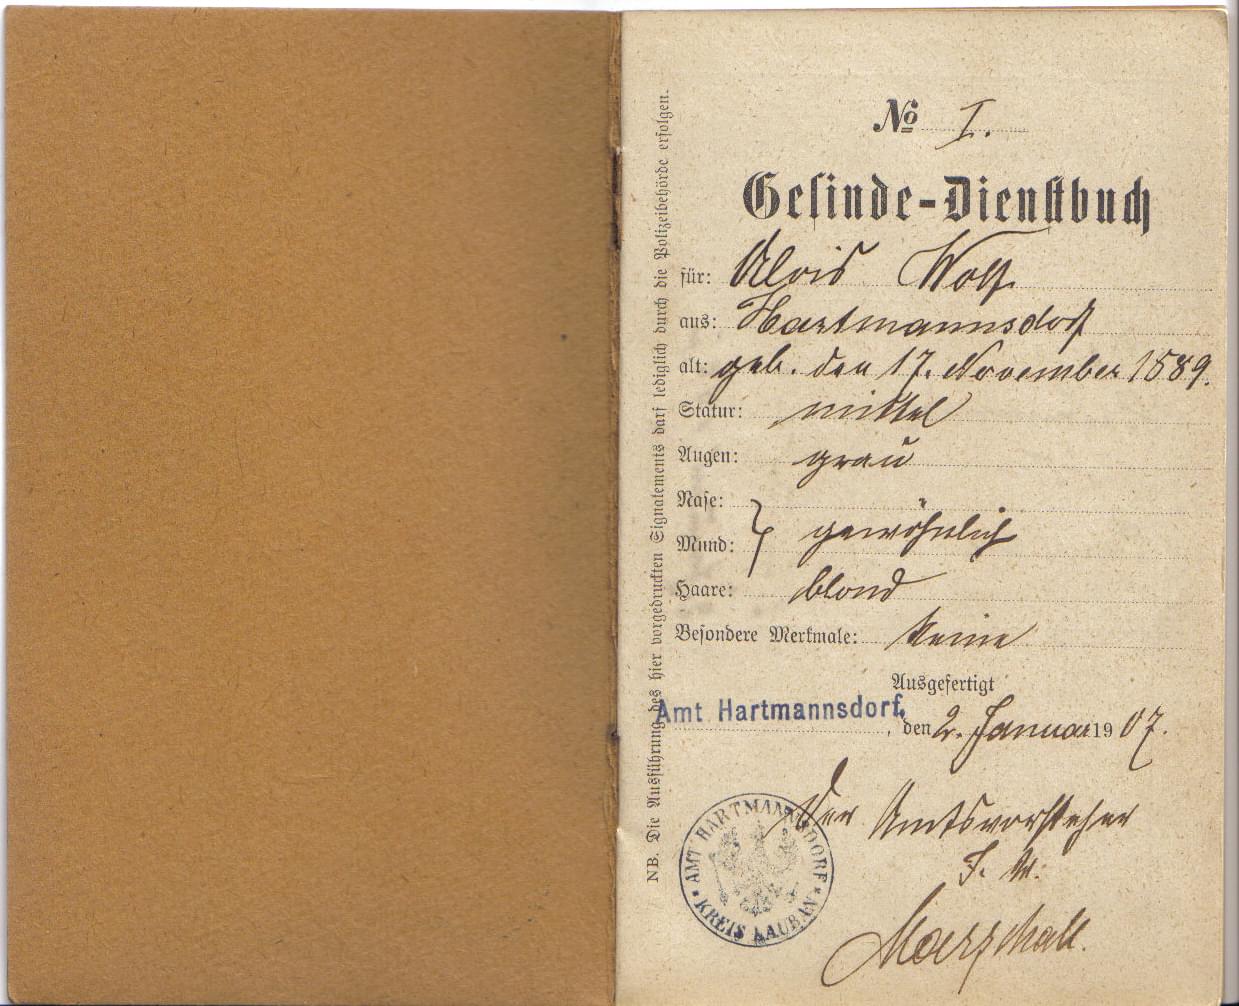 № I.
Gesinde-Dienstbuch
für: Alois Wolf
aus: Hartmannsdorf
alt: geb. den 17. November 1889.
Statur: mittel
Augen: grau
Nase:
Mund: } gewöhnlich
Haare: blond
Besondere Merkmale: keine
Ausgefertigt
Amt Hartmannsdorf, den 2. Januar 1907.
Der Amtsvorsteher
Marschall.
AMT HARTMANNSDORF
KREIS LAUBAN
NB. Die Ausführung des hier vorgedruckten Signalements darf lediglich durch die Polizeibehörde erfolgen.